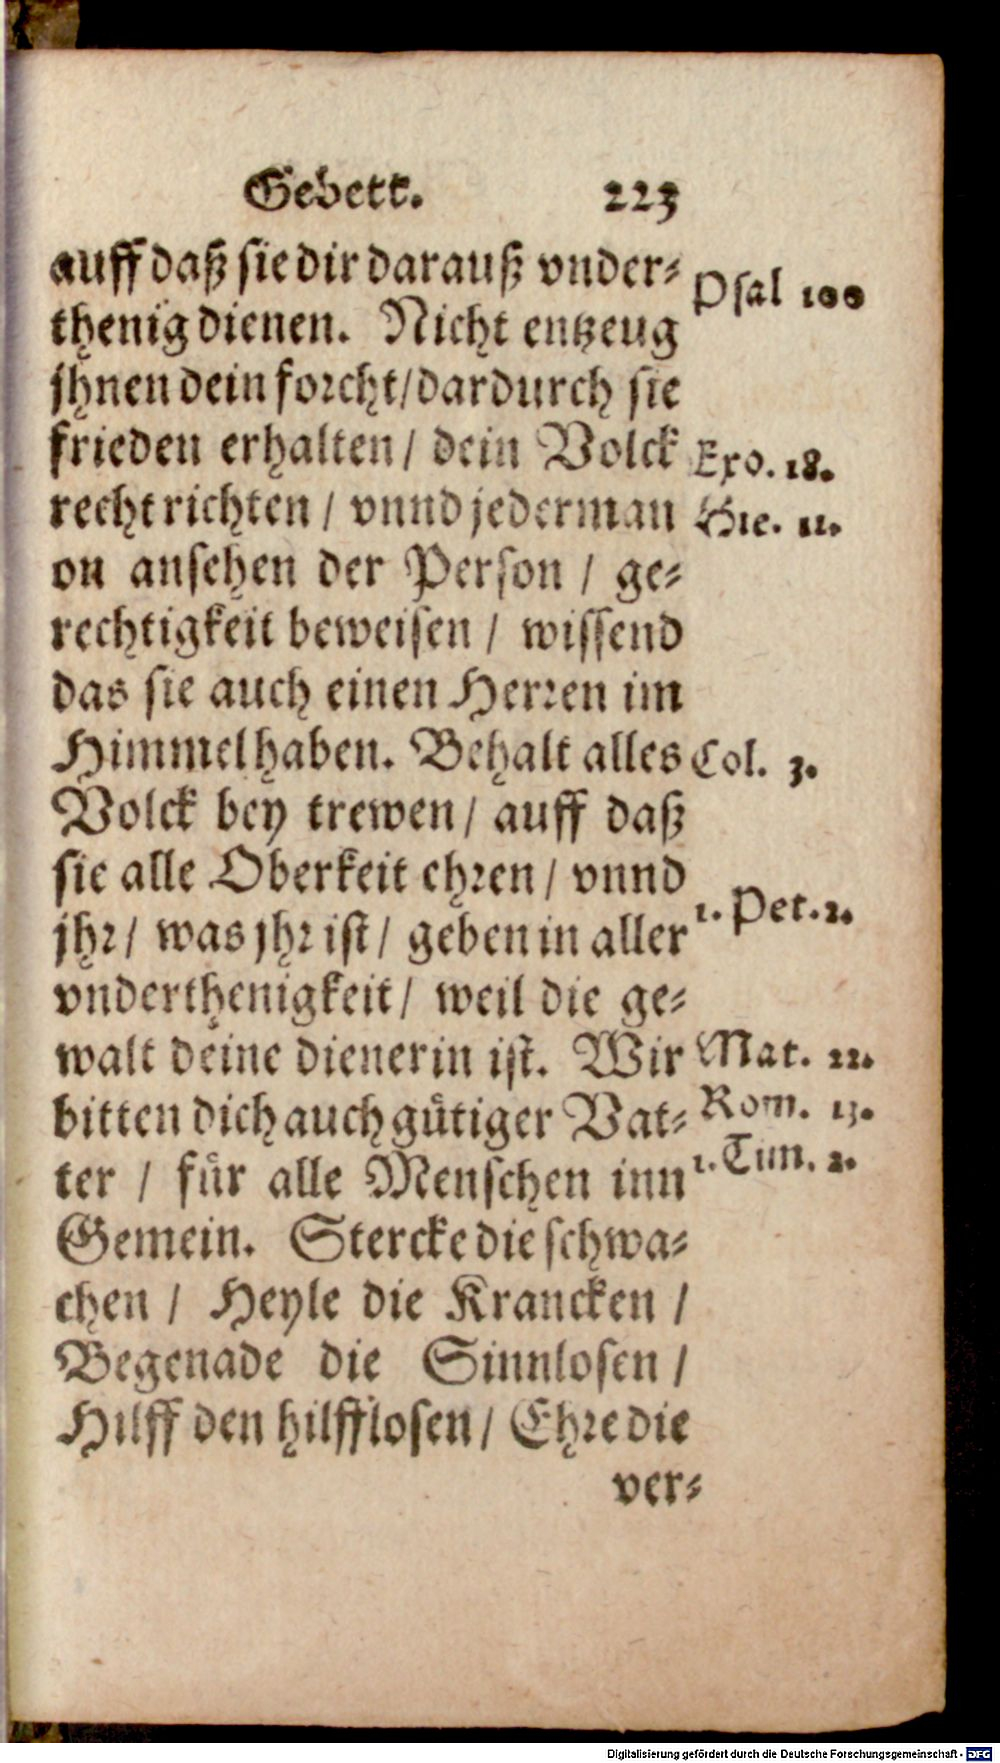 Gebett. 223
auff daß sie dir darauß vnder-
Psal 100
thenig dienen. Nicht entzeug
jhnen dein forcht/dardurch sie
frieden erhalten / dein Volck
Exo. 18.
recht richten / vnnd jederman
Hie. 22.
on ansehen der Person / ge-
rechtigkeit beweisen / wissend
das sie auch einen Herren im
Himmel haben. Behalt alles
Col. 3.
Volck bey trewen / auff daß
sie alle Oberkeit ehren / vnnd
1. Pet. 2.
jhr / was jhr ist / geben in aller
vnderthenigkeit / weil die ge-
walt deine dienerin ist. Wir
Mat. 22.
bitten dich auch gütiger Vat-
Rom. 13.
ter / für alle Menschen inn
1. Tim. 2.
Gemein. Stercke die schwa-
chen / Heyle die Krancken /
Begenade die Sinnlosen /
Hilff den hilfflosen / Ehre die
ver-
Digitalisierung gefördert durch die Deutsche Forschungsgemeinschaft - DFG